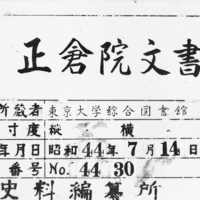 正倉院文書
所蔵者 東京大学綜合図書館
寸度 縦 横
年月日 昭和44年7月14日
番号 No. 44 30
史料編纂所